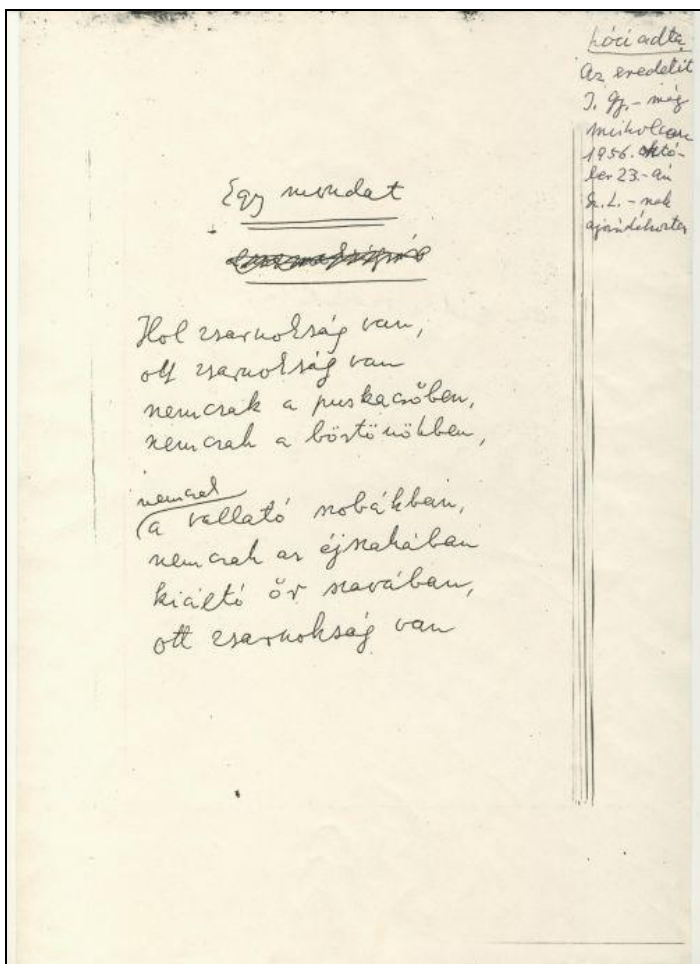 Lóci adta
Az eredetit
I. Gy. - még
Miskolcon
1956. októ-
ber 23.-án
Sz. L. - nek
ajándékozta
Egy mondat
Hol zsarnokság van,
ott zsarnokság van
nemcsak a puskacsőben,
nemcsak a börtönökben,
nemcsak
a vallató szobákban,
nemcsak az éjszakában
kiáltó őr szavában,
ott zsarnokság van